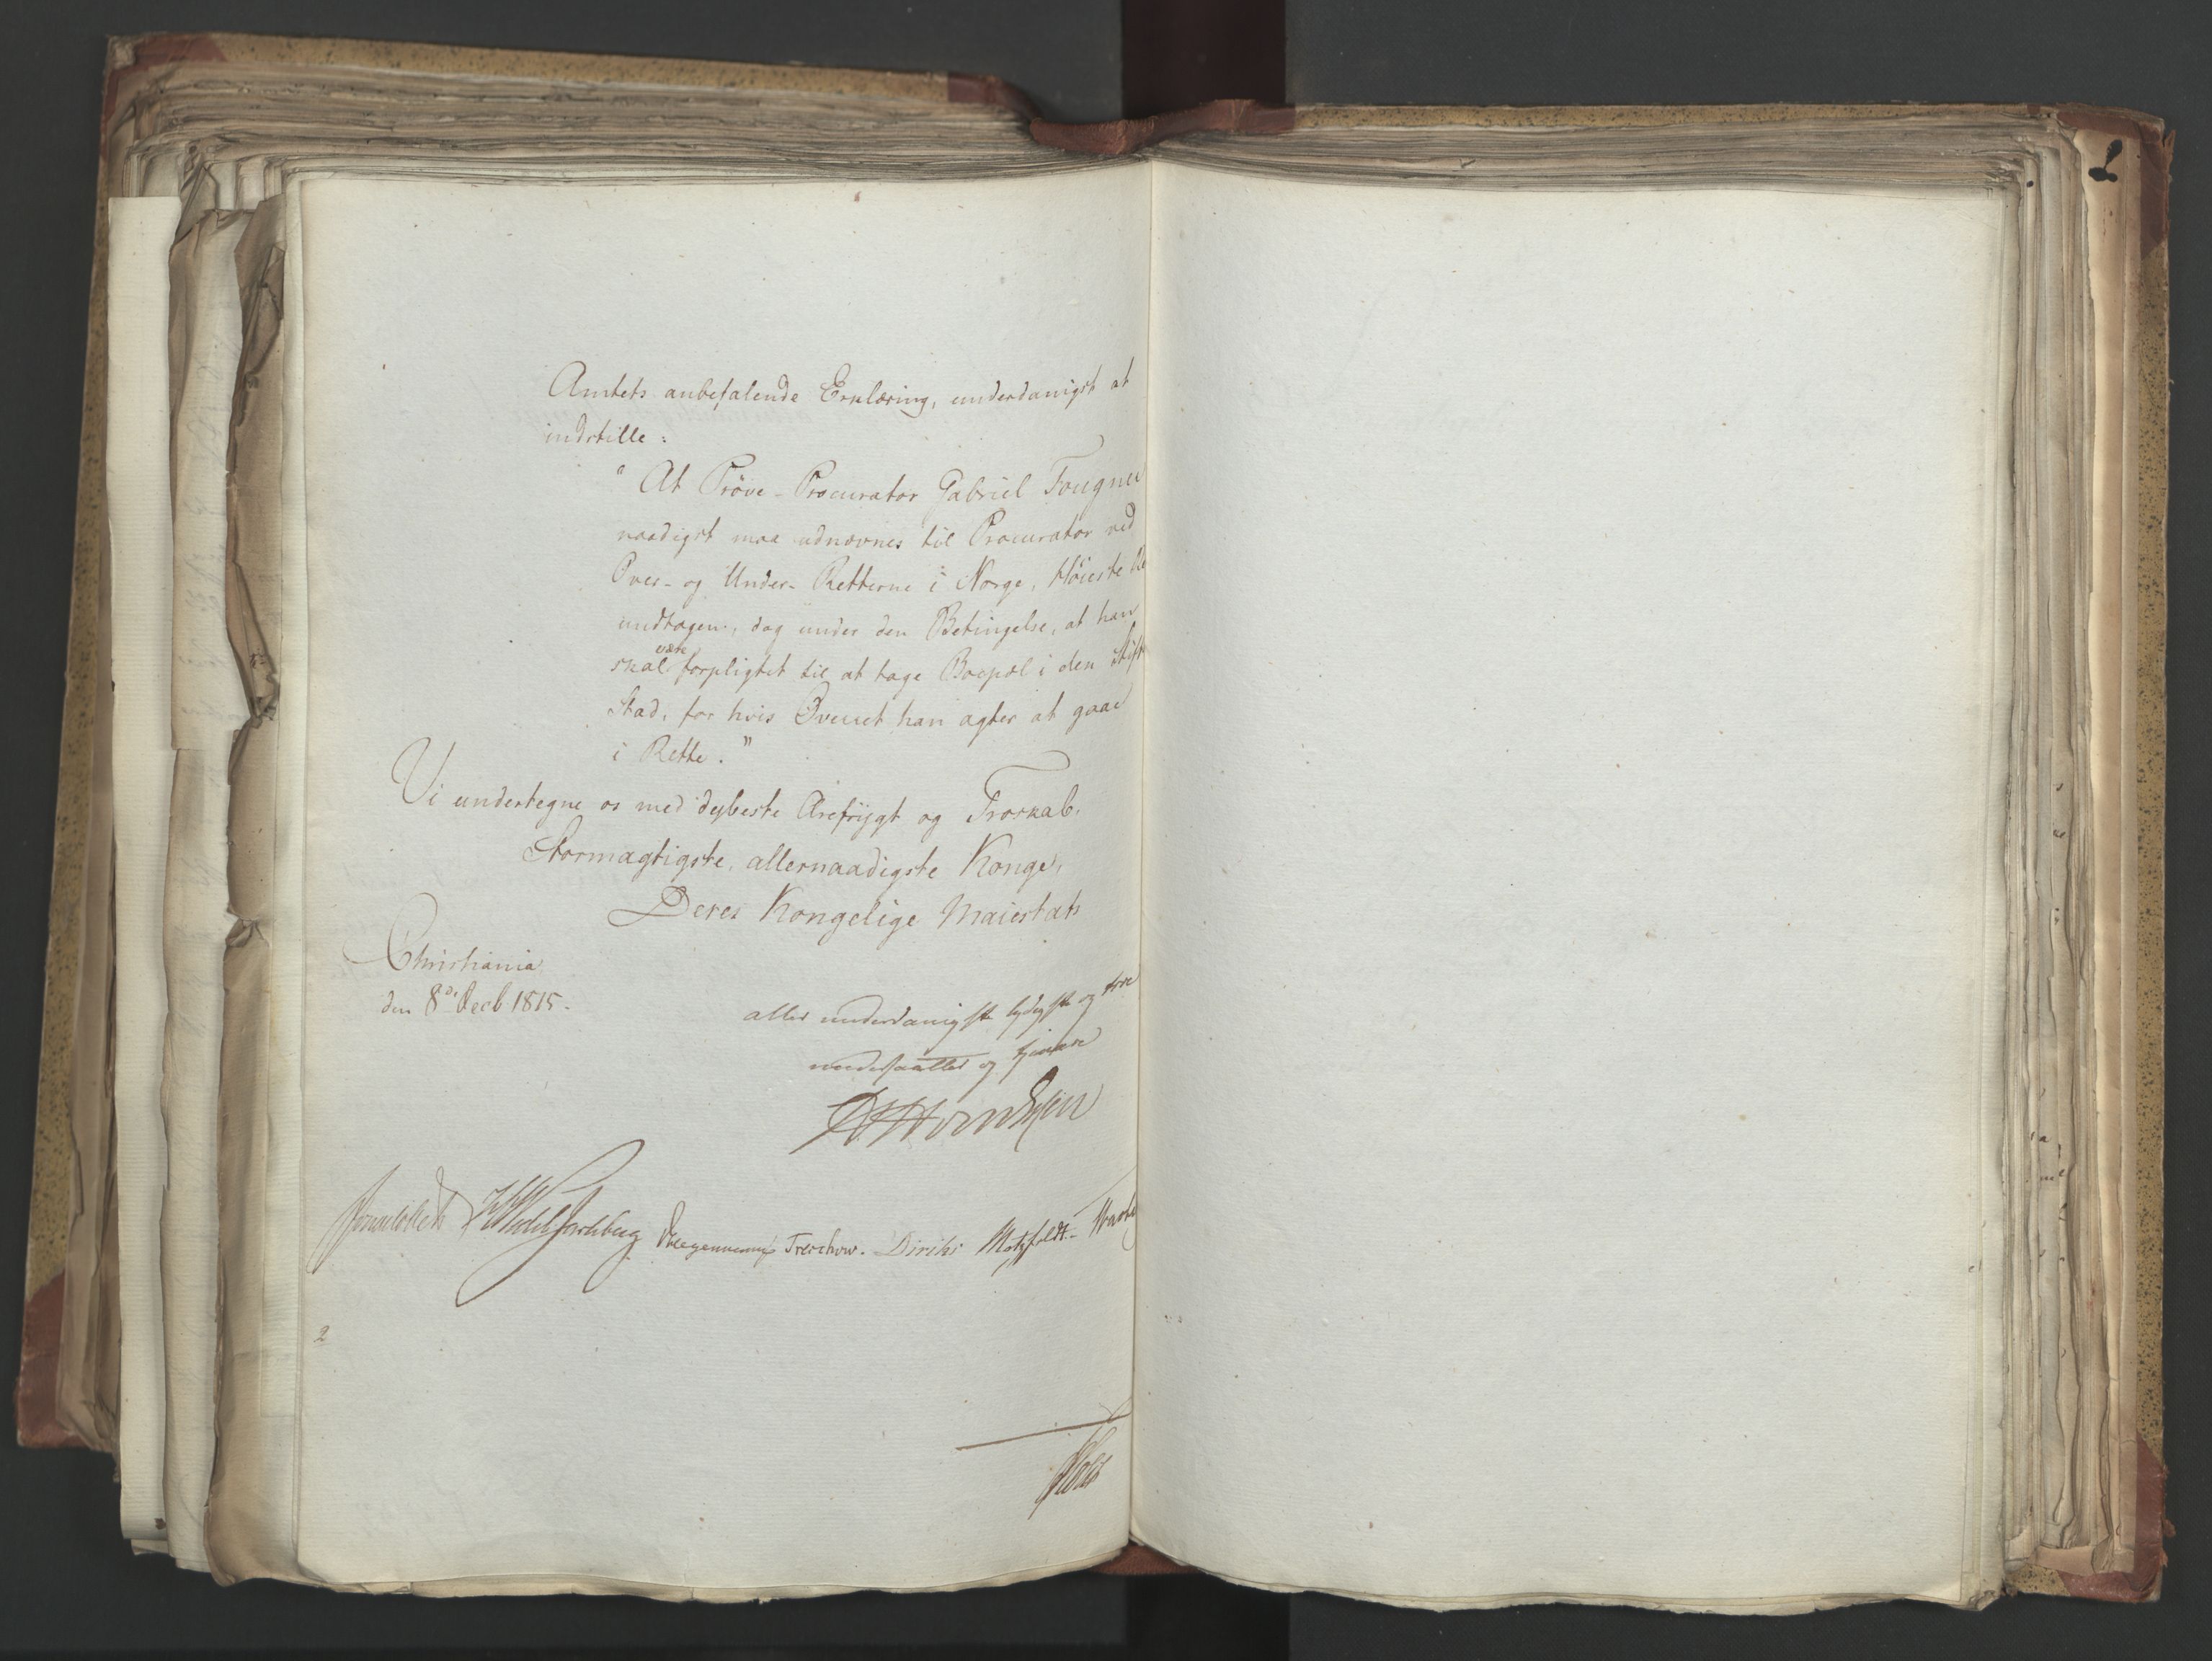 Amtets anbefalende Erklæring, underdanigst at
indstille:
"At Prøve-Procurator Gabriel Fougner
naadigst maa udnævnes til Procurator ved
Over- og Under-Retterne i Norge, Høieste Re
undtagen, dog under den Betingelse, at han
skal være forpligtet til at tage Boepæl i den Stift
Stad, for hvis Overret han agter at gaae
i Rette."
Vi undertegne os med dybeste Ærefrygt og Troskab.
Stormægtigste, allernaadigste Konge,
Deres Kongelige Maiestæts
Christiania
den 8de Decb 1815.
aller underdanigste lydigste og troe
undersaatter og tjenere
Sommerhielm Wedel Jarlsberg Treschow. Diriks Motzfeldt
2
Holst